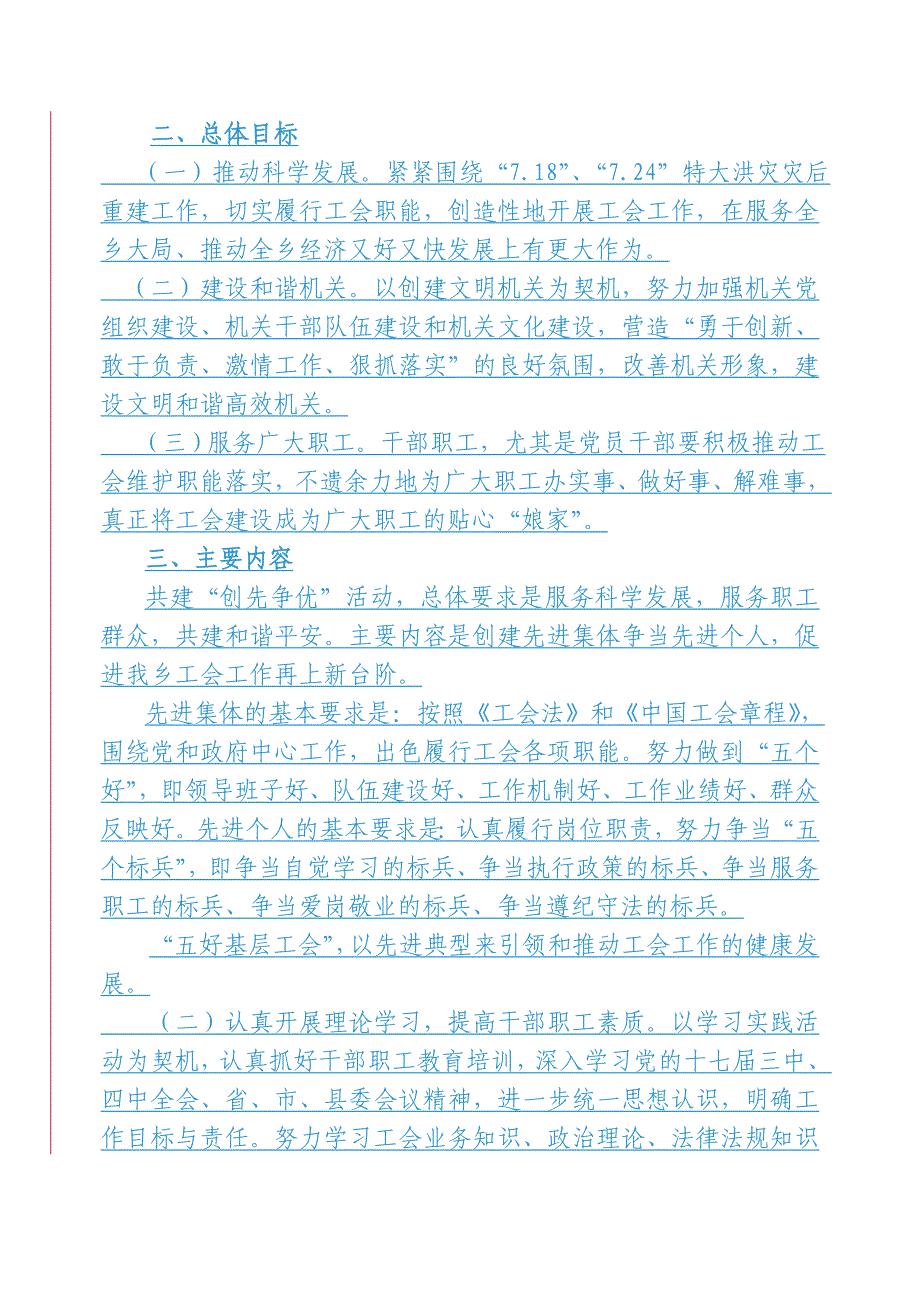 二、总体目标
（一）推动科学发展。紧紧围绕“7.18”、“7.24”特大洪灾灾后
重建工作，切实履行工会职能，创造性地开展工会工作，在服务全
乡大局、推动全乡经济又好又快发展上有更大作为。
（二）建设和谐机关。以创建文明机关为契机，努力加强机关党
组织建设、机关干部队伍建设和机关文化建设，营造“勇于创新、
敢于负责、激情工作、狠抓落实”的良好氛围，改善机关形象，建
设文明和谐高效机关。
（三）服务广大职工。干部职工，尤其是党员干部要积极推动工
会维护职能落实，不遗余力地为广大职工办实事、做好事、解难事，
真正将工会建设成为广大职工的贴心“娘家”。
三、主要内容
共建“创先争优”活动，总体要求是服务科学发展，服务职工
群众，共建和谐平安。主要内容是创建先进集体争当先进个人，促
进我乡工会工作再上新台阶。
先进集体的基本要求是：按照《工会法》和《中国工会章程》，
围绕党和政府中心工作，出色履行工会各项职能。努力做到“五个
好”，即领导班子好、队伍建设好、工作机制好、工作业绩好、群众
反映好。先进个人的基本要求是：认真履行岗位职责，努力争当“五
个标兵”，即争当自觉学习的标兵、争当执行政策的标兵、争当服务
职工的标兵、争当爱岗敬业的标兵、争当遵纪守法的标兵。
“五好基层工会”，以先进典型来引领和推动工会工作的健康发
展。
（二）认真开展理论学习，提高干部职工素质。以学习实践活
动为契机，认真抓好干部职工教育培训，深入学习党的十七届三中、
四中全会、省、市、县委会议精神，进一步统一思想认识，明确工
作目标与责任。努力学习工会业务知识、政治理论、法律法规知识